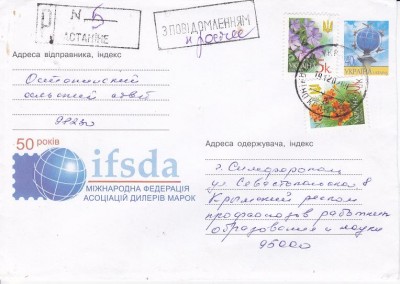 Р N 5
ОСТАНІНЕ
З ПОВІДОМЛЕННЯМ
простее
Адреса відправника, індекс
Останинский
сельский совет
98230
УКРАЇНА
50 років
ifsda
МІЖНАРОДНА ФЕДЕРАЦІЯ
АСОЦІАЦІЙ ДИЛЕРІВ МАРОК
Адреса одержувача, індекс
г. Симферополь
ул Севастопольская 8
Крымский респом
профсоюзов работник
образования и науки
95000